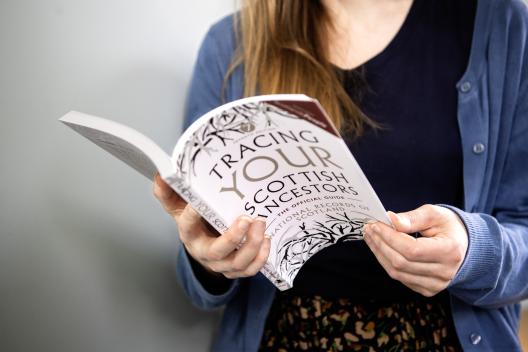 TRACING
YOUR
SCOTTISH
ANCESTORS
THE OFFICIAL GUIDE
NATIONAL RECORDS OF
SCOTLAND